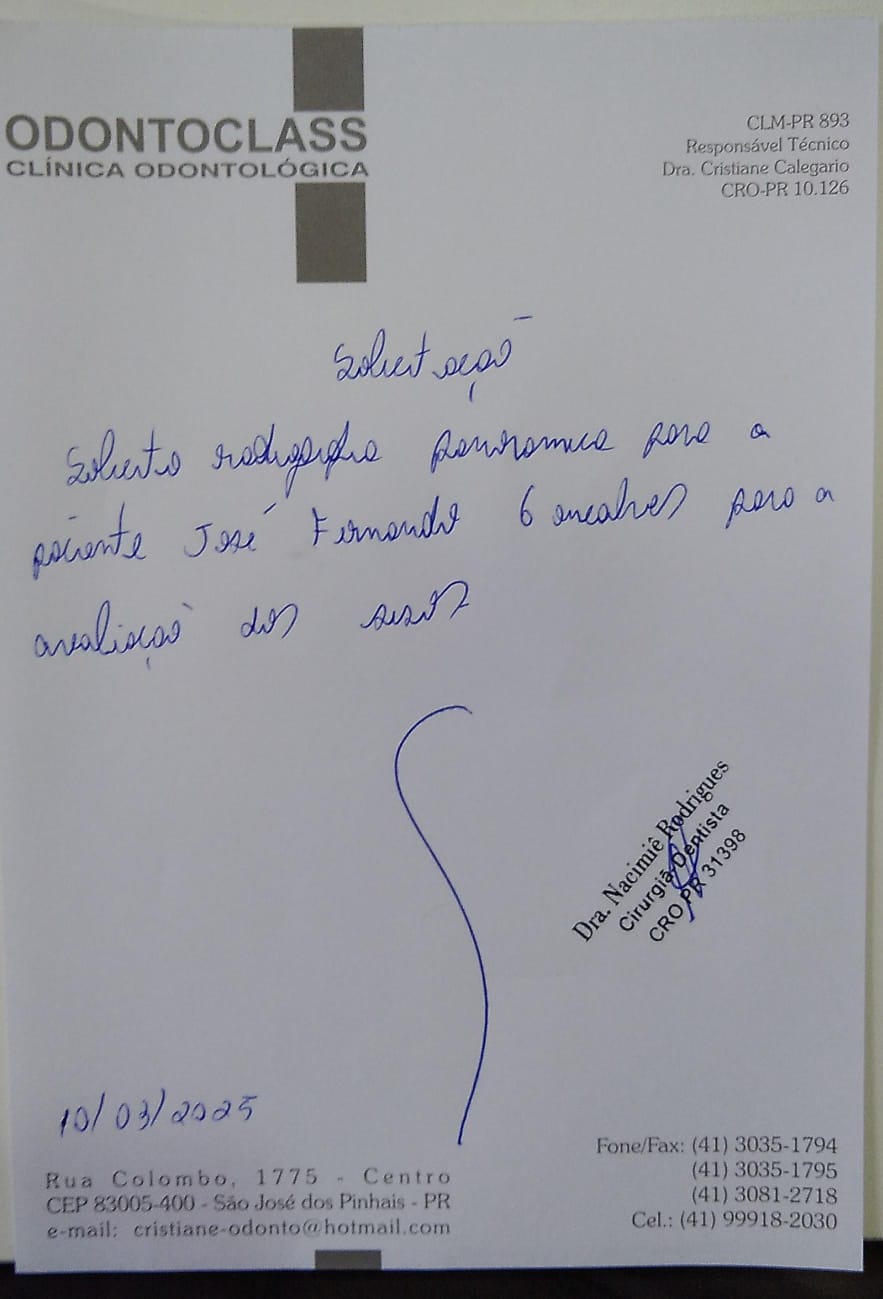 ODONTOCLASS
CLÍNICA ODONTOLÓGICA
CLM-PR 893
Responsável Técnico
Dra. Cristiane Calegario
CRO-PR 10.126
Solicitação
Solicito radiografia panoramica para a
paciente José Fernando Goncalves para a
avaliação dos sisos
Dra. Nacimiê Rodrigues
Cirurgiã Dentista
CRO PR 31398
10/03/2025
Rua Colombo, 1775 - Centro
CEP 83005-400 - São José dos Pinhais - PR
e-mail: cristiane-odonto@hotmail.com
Fone/Fax: (41) 3035-1794
(41) 3035-1795
(41) 3081-2718
Cel.: (41) 99918-2030